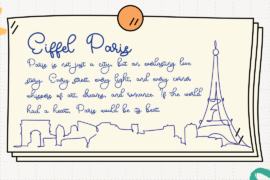 Eiffel Paris
Paris is not just a city, but an everlasting love
story. Every street, every light, and every corner
whispers of art, dreams, and romance. If the world
had a heart, Paris would be its beat.